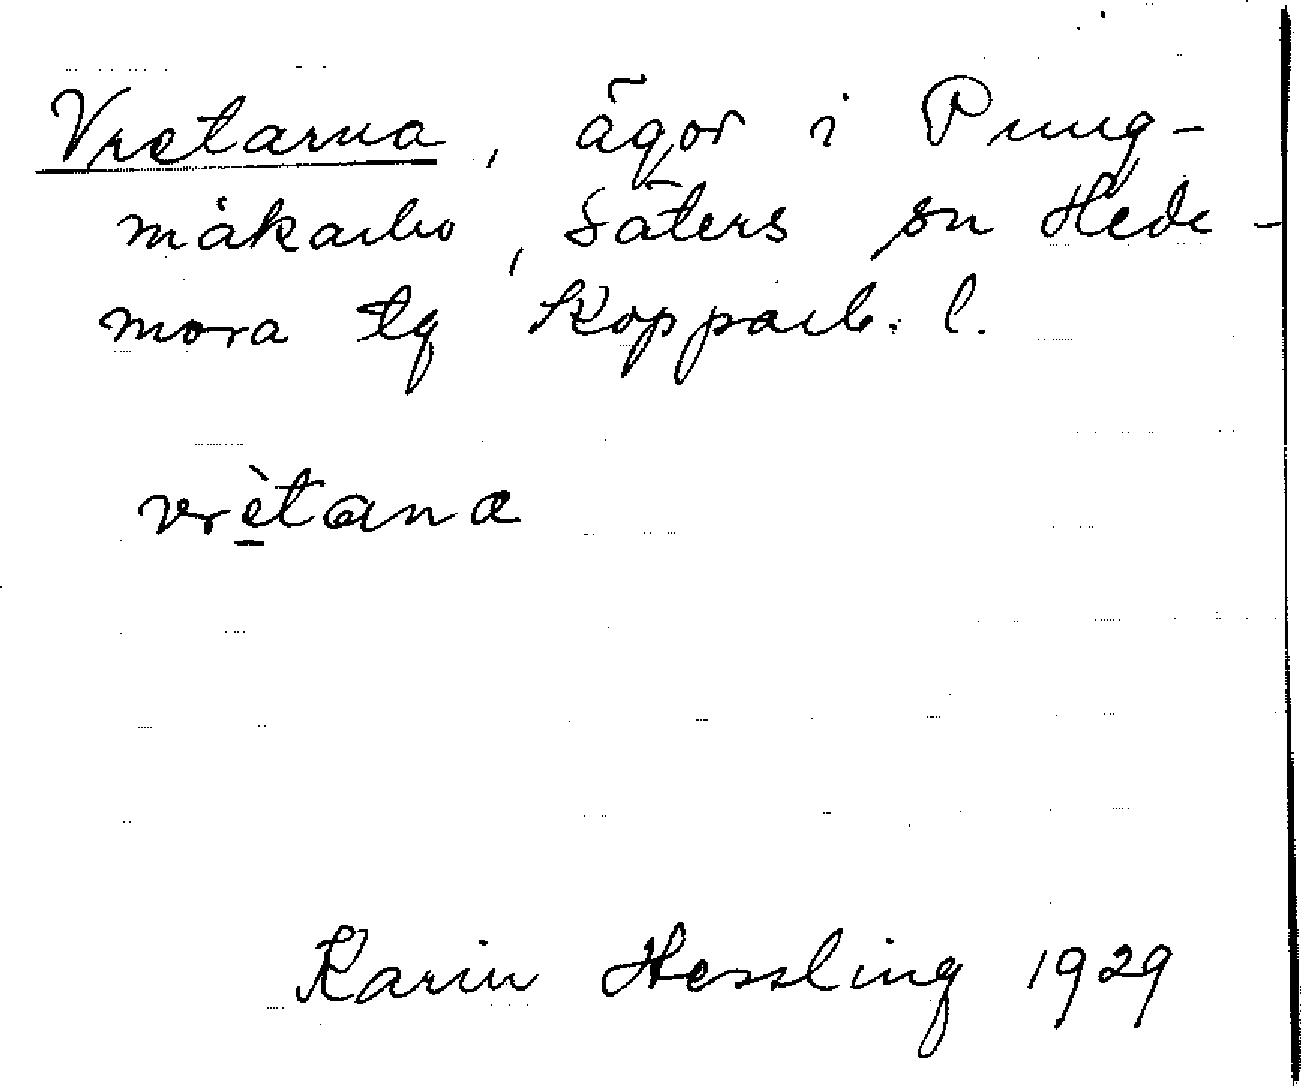 Vretarna, ägor i Pung-
mäkarbo, Säters sn Hede-
mora tg Kopparb. l.
vrètana
Karin Hessling 1929